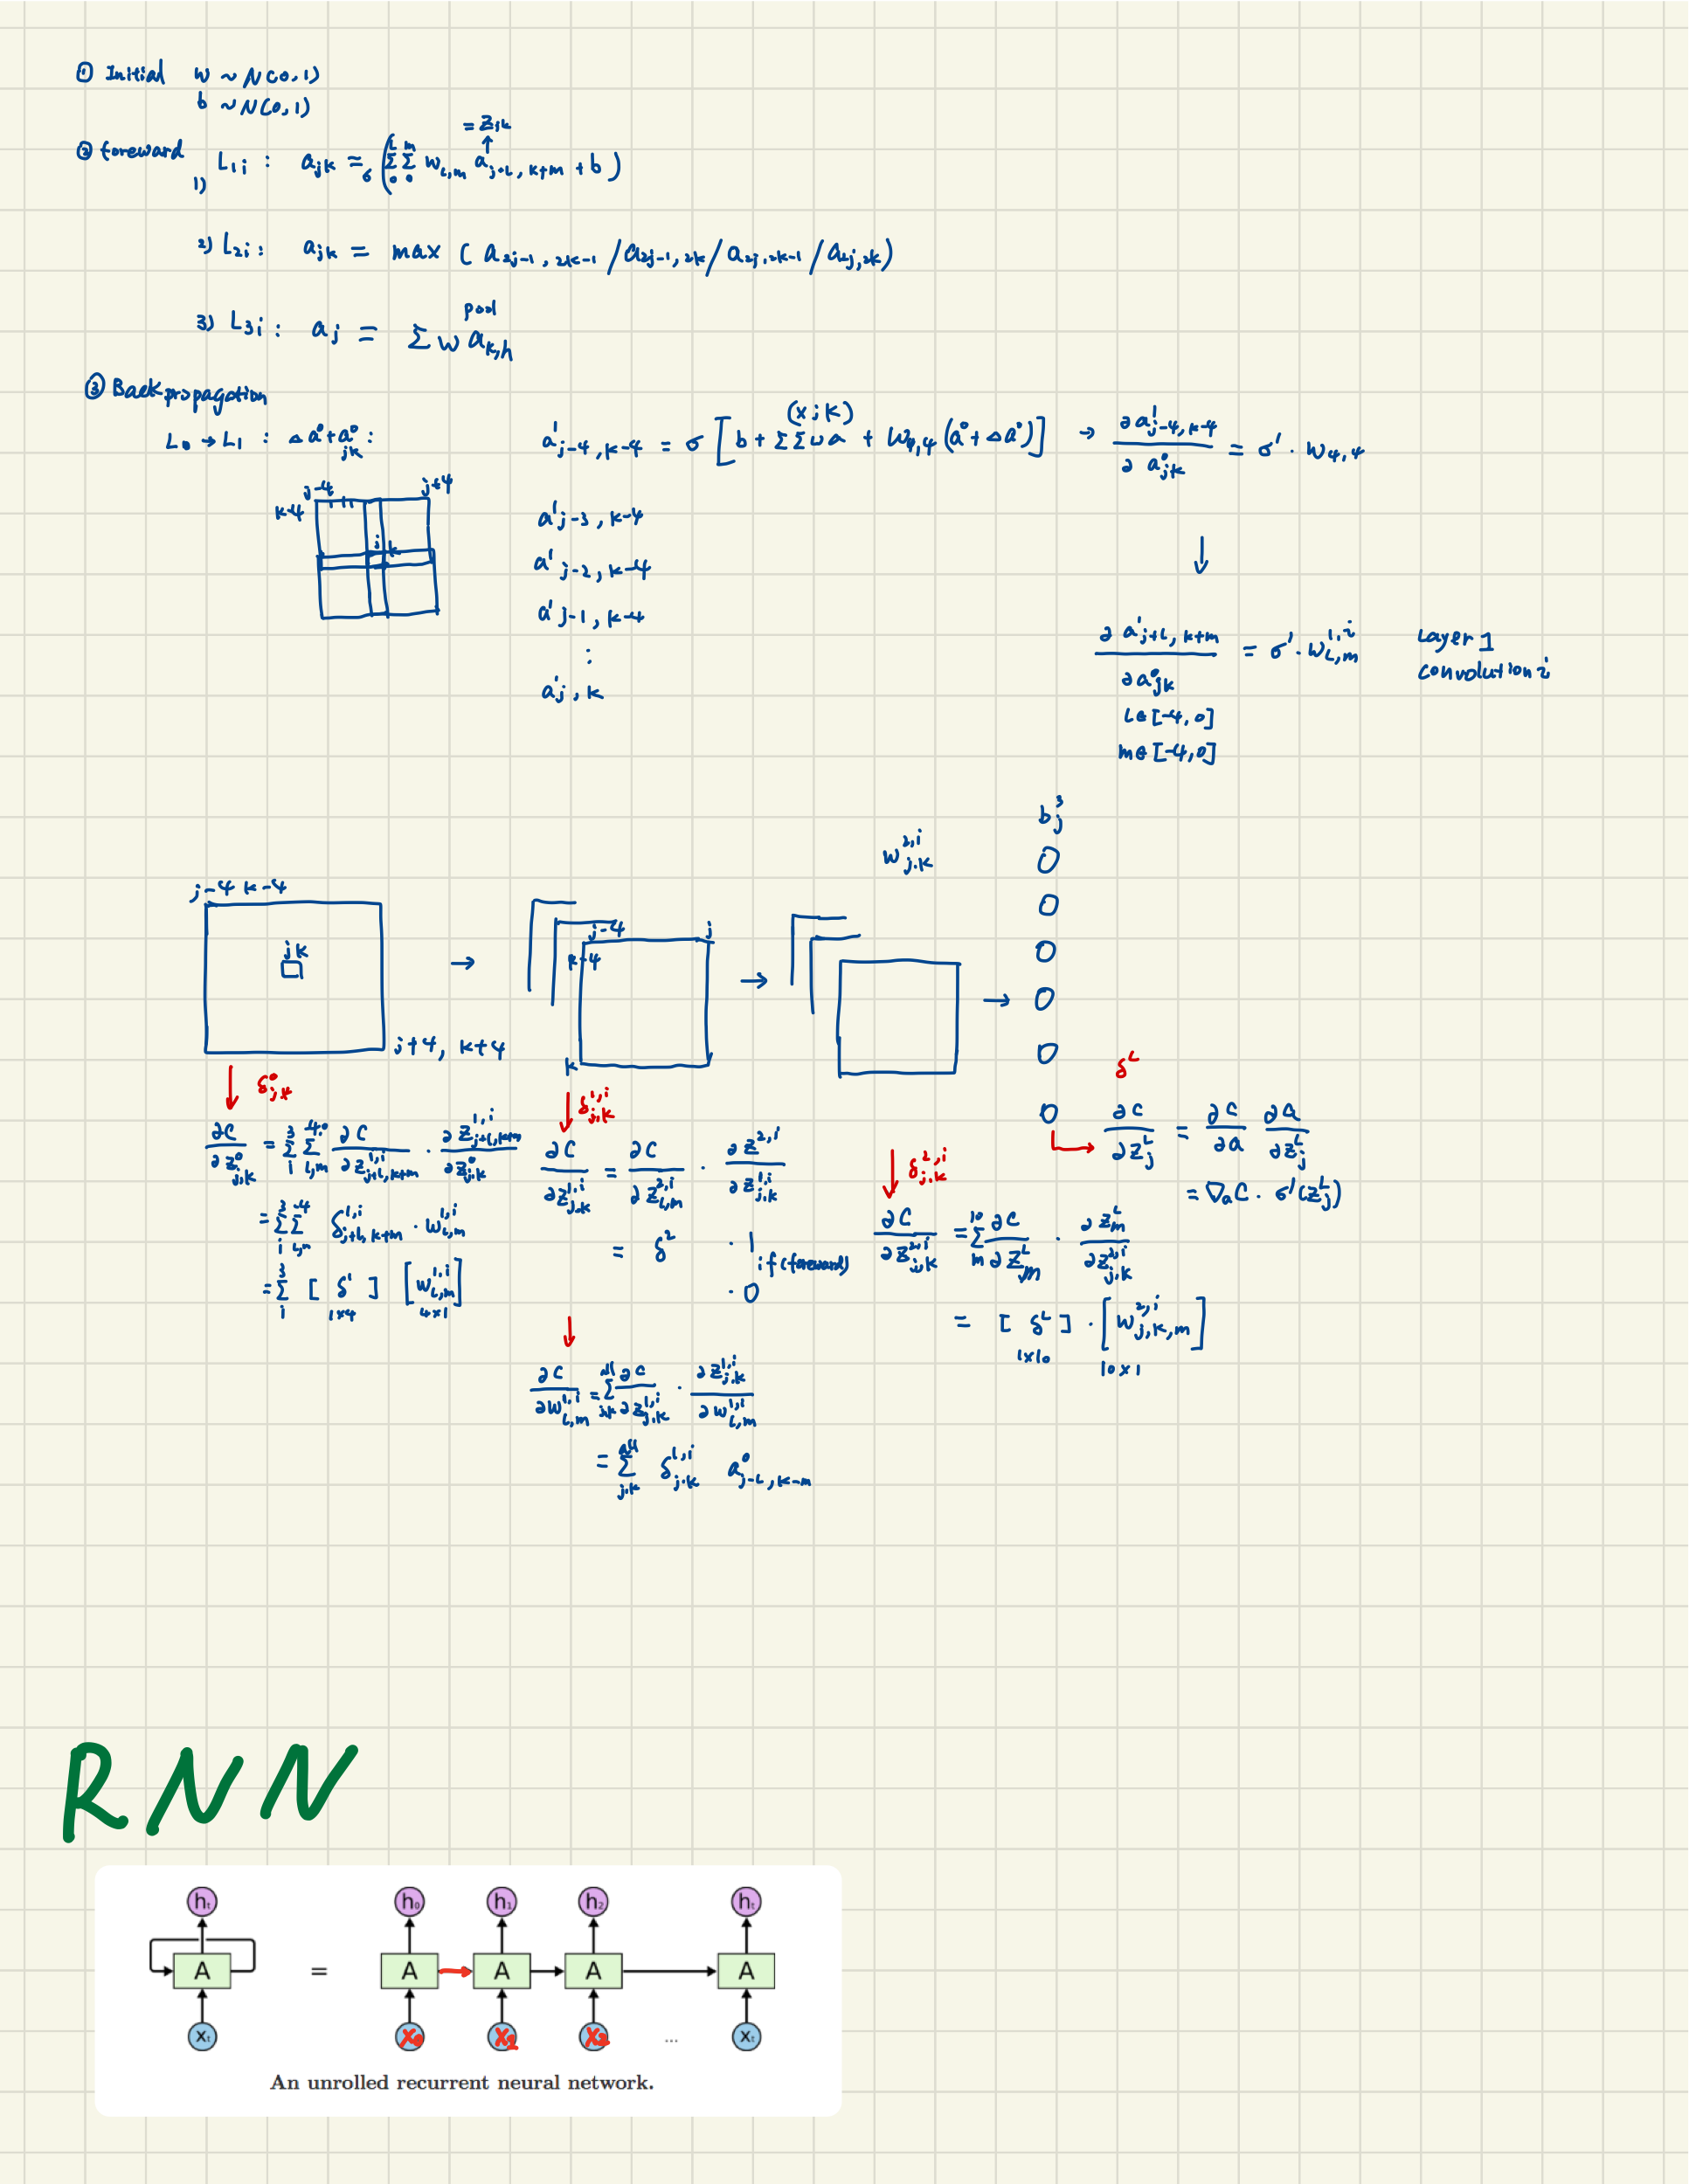 ① Initial w ~ N(0,1)
b ~ N(0,1)
= z_jk
↑
② foreward 1) L_1i : a_jk = σ ( Σ_0^L Σ_0^m w_l,m a_j+l,k+m + b )
2) L_2i : a_jk = max ( a_2j-1,2k-1 / a_2j-1,2k / a_2j,2k-1 / a_2j,2k )
pool
3) L_3i : a_j = Σ w a_k,h
③ Backpropagation
L_0 → L_1 : Δa^0 + a^0_jk :
(x j k)
a'_j-4,k-4 = σ [ b + ΣΣ w a + w_4,4 (a^0 + Δa^0) ] → ∂a'_j-4,k-4 / ∂a^0_jk = σ' · w_4,4
j-4 j+4
k-4
jk
a'j-3, k-4
a'j-2, k-4
a'j-1, k-4
:
a'j, k
↓
∂a'_j+l,k+m / ∂a^0_jk = σ' · w^1,i_l,m
Layer 1
convolution i
l ∈ [-4, 0]
m ∈ [-4, 0]
b^3_j
w^2,i_j,k
j-4 k-4
jk
j+4, k+4
→
j-4 j
k-4
k
→
→
O
O
O
O
O
O
δ^0_j,k
∂C/∂z^0_j,k = Σ_i^3 Σ_l,m ∂C/∂z^1,i_j+l,k+m · ∂z^1,i_j+l,k+m/∂z^0_j,k
= Σ_i^3 Σ_l,m^-4 δ^1,i_j+l,k+m · w^1,i_l,m
= Σ_i^3 [ δ^1 ] [ w^1,i_l,m ]
1x4 4x1
δ^1,i_j,k
∂C/∂z^1,i_j,k = ∂C/∂z^2,i_l,m · ∂z^2,i/∂z^1,i_j,k
= δ^2 · 1 if (foreward)
· 0
↓
∂C/∂w^1,i_l,m = Σ_j,k^all ∂C/∂z^1,i_j,k · ∂z^1,i_j,k/∂w^1,i_l,m
= Σ_j,k^all δ^1,i_j,k a^0_j-l,k-m
δ^2,i_j,k
∂C/∂z^2,i_j,k = Σ_m^10 ∂C/∂z^L_m · ∂z^L_m/∂z^2,i_j,k
= [ δ^L ] · [ w^2,i_j,k,m ]
1x10 10x1
δ^L
∂C/∂z^L_j = ∂C/∂a ∂a/∂z^L_j
= ∇_a C · σ'(z^L_j)
RNN
h_t h_0 h_1 h_2 h_t
A = A A A A
x_t X_0 X_1 X_2 ... x_t
An unrolled recurrent neural network.